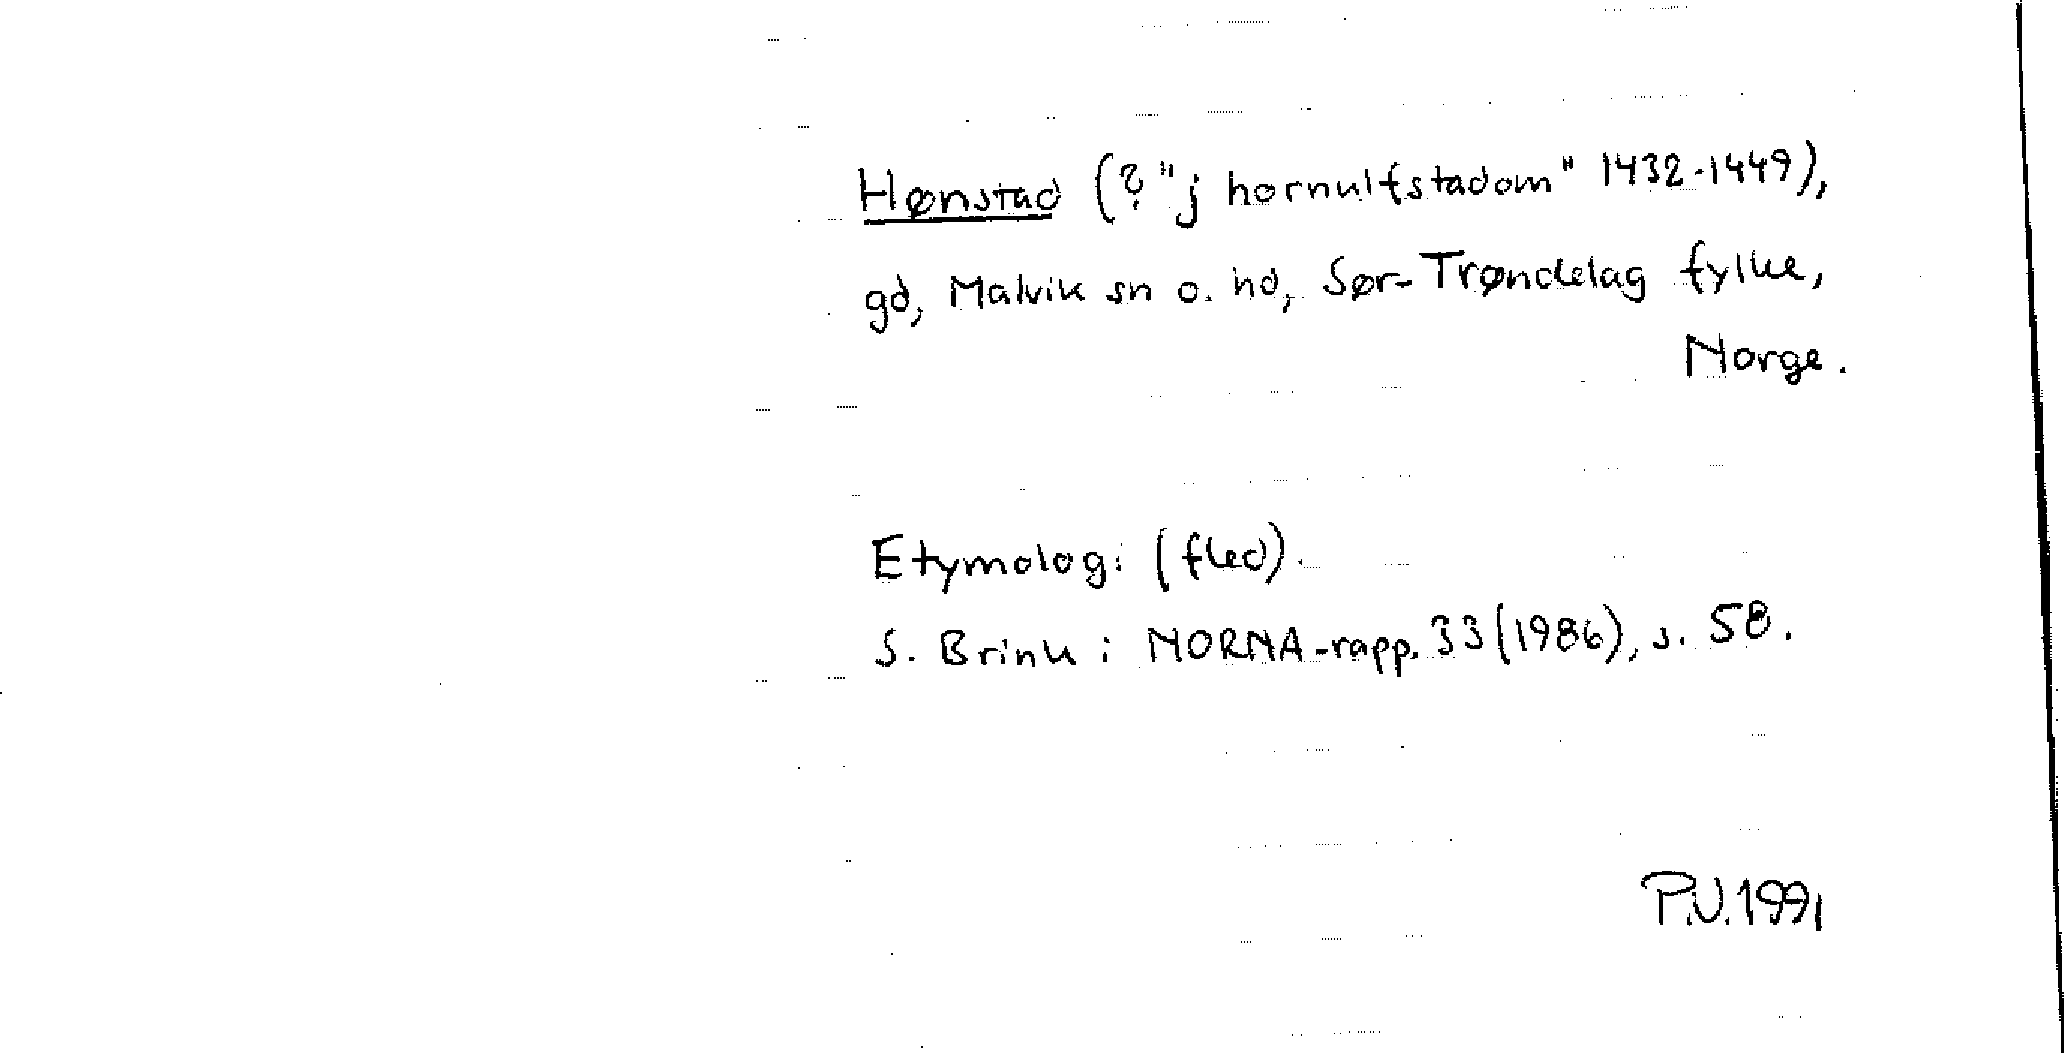 Hønstad (? "j hornulfstadom" 1432-1449),
gd, Malvik sn o. hd, Sør-Trøndelag fylke,
Norge.
Etymologi (fled).
S. Brink i NORNA-rapp. 33 (1986), s. 58.
P.V. 1991